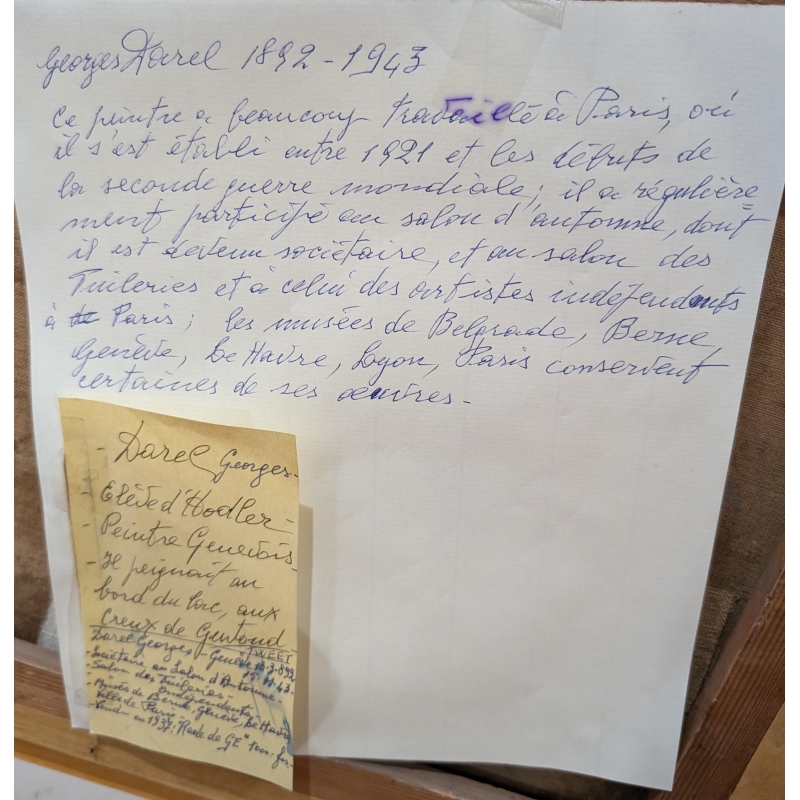 Georges Darel 1892-1943
Ce peintre a beaucoup travaillé à Paris, où
il s'est établi entre 1921 et les débuts de
la seconde guerre mondiale; il a régulière=
ment participé au salon d'automne, dont
il est devenu sociétaire, et au salon des
Tuileries et à celui des artistes indépendants
à de Paris; les musées de Belgrade, Berne,
Genève, Le Havre, Lyon, Paris conservent
certaines de ses œuvres-
- Darel Georges-
- Elève d'Hodler-
- Peintre Genevois-
- Il peignait au
bord du lac, aux
Creux de Gentoud-
Darel Georges - Genève 10.3.892
11.43-
- Sociétaire au Salon d'Automne-
- Salon des Tuileries-
Indépendants-
- Musées de Berne, Genève, Le Havre
Ville de Paris-
- Vendu en 1937: Rade de GE